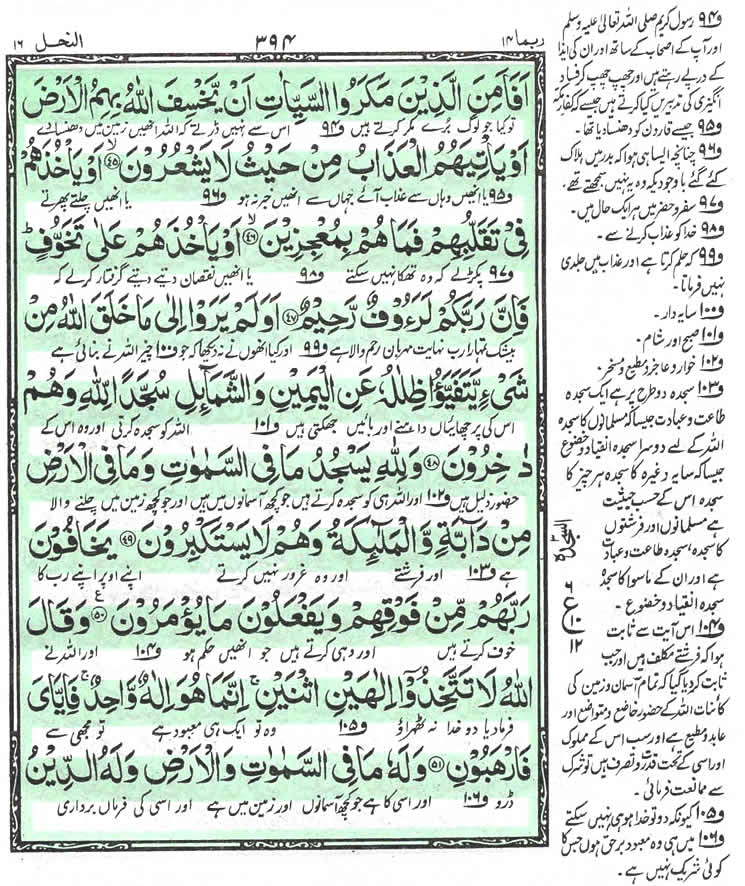 ربما ١٤
٣٩٤
النحل ١٦
اَفَاَمِنَ الَّذِيْنَ مَكَرُوا السَّيِّاٰتِ اَنْ يَّخْسِفَ اللّٰهُ بِهِمُ الْاَرْضَ
تو کیا جو لوگ بُرے مکر کرتے ہیں ف۹۴ اس سے نہیں ڈرتے کہ اللہ انھیں زمین میں دھنسا دے
اَوْ يَاْتِيَهُمُ الْعَذَابُ مِنْ حَيْثُ لَا يَشْعُرُوْنَ ﴿٤٥﴾ اَوْ يَاْخُذَهُمْ
ف۹۵ یا انھیں وہاں سے عذاب آئے جہاں سے انھیں خبر نہ ہو ف۹۶ یا انھیں چلتے پھرتے
فِيْ تَقَلُّبِهِمْ فَمَا هُمْ بِمُعْجِزِيْنَ ﴿٤٦﴾ اَوْ يَاْخُذَهُمْ عَلٰى تَخَوُّفٍ
ف۹۷ پکڑ لے کہ وہ تھکا نہیں سکتے ف۹۸ یا انھیں نقصان دیتے دیتے گرفتار کر لے کہ
فَاِنَّ رَبَّكُمْ لَرَءُوْفٌ رَّحِيْمٌ ﴿٤٧﴾ اَوَلَمْ يَرَوْا اِلٰى مَا خَلَقَ اللّٰهُ مِنْ
بیشک تمہارا رب نہایت مہربان رحم والا ہے ف۹۹ اور کیا انھوں نے نہ دیکھا کہ جو ف۱۰۰ چیز اللہ نے بنائی ہے
شَيْءٍ يَّتَفَيَّؤُا ظِلٰلُهٗ عَنِ الْيَمِيْنِ وَالشَّمَآئِلِ سُجَّدًا لِّلّٰهِ وَهُمْ
اس کی پرچھائیاں داہنے اور بائیں جھکتی ہیں ف۱۰۱ اللہ کو سجدہ کرتی اور وہ اس کے
دٰخِرُوْنَ ﴿٤٨﴾ وَلِلّٰهِ يَسْجُدُ مَا فِي السَّمٰوٰتِ وَمَا فِي الْاَرْضِ
حضور ذلیل ہیں ف۱۰۲ اور اللہ ہی کو سجدہ کرتے ہیں جو کچھ آسمانوں میں ہیں اور جو کچھ زمین میں چلنے والا
مِنْ دَآبَّةٍ وَّالْمَلٰٓئِكَةُ وَهُمْ لَا يَسْتَكْبِرُوْنَ ﴿٤٩﴾ يَخَافُوْنَ
ہے ف۱۰۳ اور فرشتے اور وہ غرور نہیں کرتے اپنے اوپر اپنے رب کا
رَبَّهُمْ مِّنْ فَوْقِهِمْ وَيَفْعَلُوْنَ مَا يُؤْمَرُوْنَ ﴿٥٠﴾ وَقَالَ
خوف کرتے ہیں اور وہی کرتے ہیں جو انھیں حکم ہو ف۱۰۴ اور اللہ نے
اللّٰهُ لَا تَتَّخِذُوْٓا اِلٰهَيْنِ اثْنَيْنِ ۚ اِنَّمَا هُوَ اِلٰهٌ وَّاحِدٌ ۚ فَاِيَّايَ
فرما دیا دو خدا نہ ٹھہراؤ ف۱۰۵ وہ تو ایک ہی معبود ہے تو مجھی سے
فَارْهَبُوْنِ ﴿٥١﴾ وَلَهٗ مَا فِي السَّمٰوٰتِ وَالْاَرْضِ وَلَهُ الدِّيْنُ
ڈرو ف۱۰۶ اور اسی کا ہے جو کچھ آسمانوں اور زمین میں ہے اور اسی کی فرماں برداری
السجدة ٣
ع ٦ ١٠ ١٢
ف۹۴ رسول کریم صلی اللہ تعالیٰ علیہ وسلم
اور آپ کے اصحاب کے ساتھ اور ان کی ایذا
کے درپے رہتے ہیں اور چھپ چھپ کر فساد
انگیزی کی تدبیریں کیا کرتے ہیں جیسے کہ کفار مکہ
ف۹۵ جیسے قارون کو دھنسا دیا تھا۔
ف۹۶ چنانچہ ایسا ہی ہوا کہ بدر میں ہلاک
کئے گئے باوجودیکہ وہ یہ نہیں سمجھتے تھے۔
ف۹۷ سفر و حضر میں ہر ایک حال میں۔
ف۹۸ خدا کو عذاب کرنے سے۔
ف۹۹ کہ حلم کرتا ہے اور عذاب میں جلدی
نہیں فرماتا۔
ف۱۰۰ سایہ دار۔
ف۱۰۱ صبح اور شام۔
ف۱۰۲ خوار و عاجز و مطیع و مسخر۔
ف۱۰۳ سجدہ دو طرح پر ہے ایک سجدہ
طاعت و عبادت جیسا کہ مسلمانوں کا سجدہ
اللہ کے لیے دوسرا سجدہ انقیاد و خضوع
جیسا کہ سایہ وغیرہ کا سجدہ ہر چیز کا
سجدہ اس کے حسب حیثیت
ہے مسلمانوں اور فرشتوں
کا سجدہ، سجدہ طاعت و عبادت
ہے اور ان کے ماسوا کا سجدہ
سجدہ انقیاد و خضوع۔
ف۱۰۴ اس آیت سے ثابت
ہوا کہ فرشتے مکلف ہیں اور جب
ثابت کر دیا گیا کہ تمام آسمان و زمین کی
کائنات اللہ کے حضور خاضع و متواضع اور
عابد و مطیع ہے اور سب اس کے مملوک
اور اسی کے تحت قدرت و تصرف ہیں تو شرک
سے ممانعت فرمائی۔
ف۱۰۵ کیونکہ دو تو خدا ہو ہی نہیں سکتے
ف۱۰۶ میں ہی وہ معبود برحق ہوں جس کا
کوئی شریک نہیں ہے۔